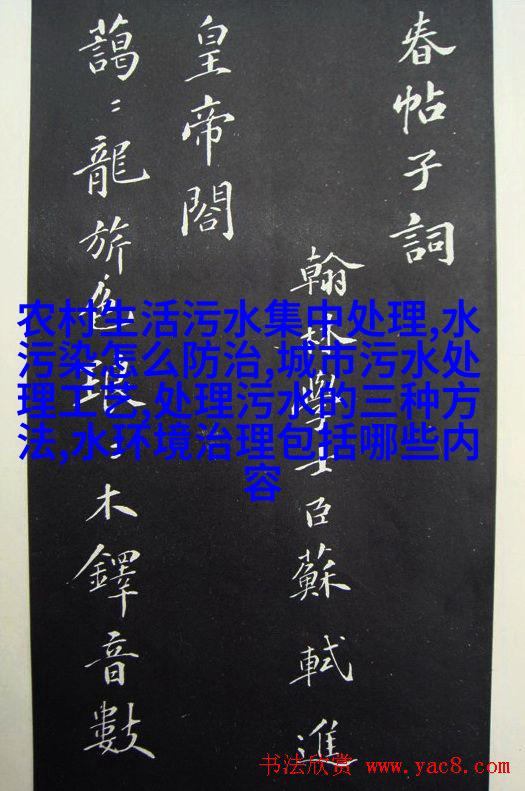 春帖子詞
翰林學士臣蘇軾進
皇帝閤
藹〻龍旂色琅〻木鐸音數
农村生活污水集中处理,水
污染怎么防治,城市污水处
理工艺,处理污水的三种方
法,水环境治理包括哪些内
容
书法欣赏 www.yac8.com